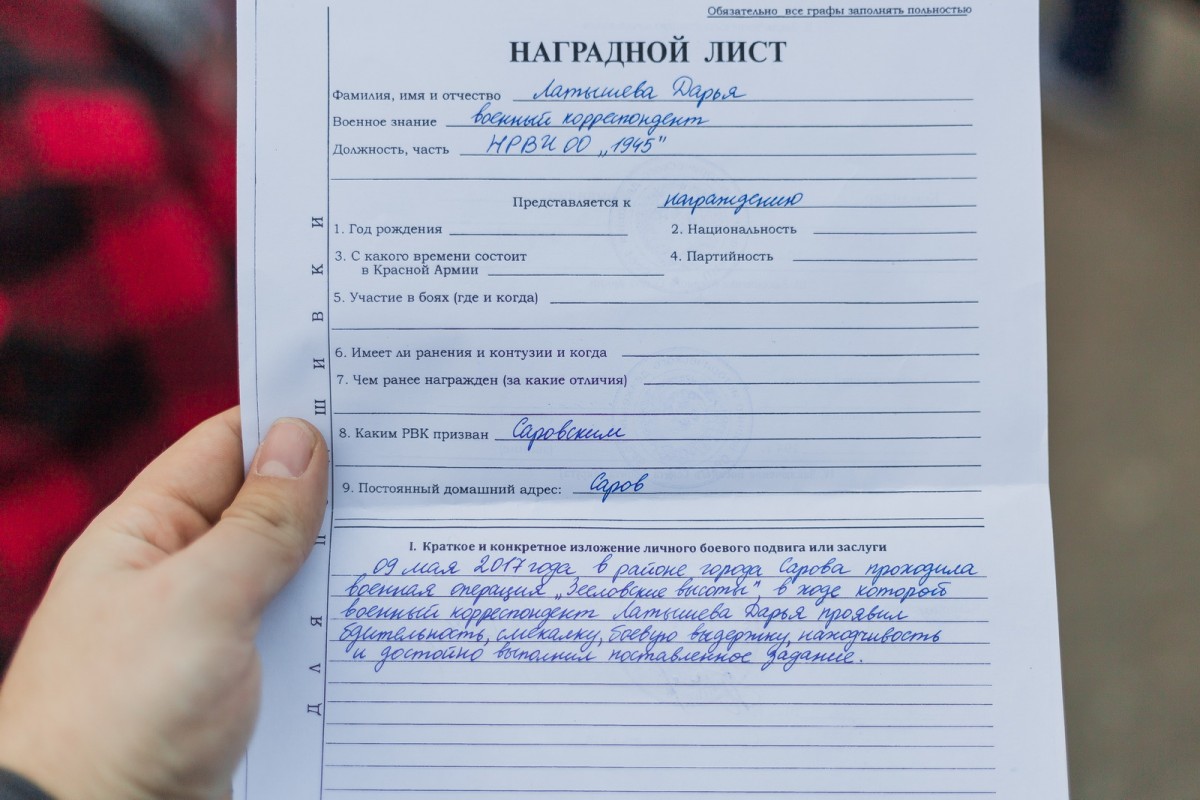 Обязательно все графы заполнять полностью
НАГРАДНОЙ ЛИСТ
Фамилия, имя и отчество Латышева Дарья
Военное знание военный корреспондент
Должность, часть НРВИ ОО „1945"
Представляется к награждению
1. Год рождения 2. Национальность
3. С какого времени состоит 4. Партийность
в Красной Армии
5. Участие в боях (где и когда)
6. Имеет ли ранения и контузии и когда
7. Чем ранее награжден (за какие отличия)
8. Каким РВК призван Саровским
9. Постоянный домашний адрес: Саров
I. Краткое и конкретное изложение личного боевого подвига или заслуги
09 мая 2017 года в районе города Сарова проходила
военная операция „Зееловские высоты", в ходе которой
военный корреспондент Латышева Дарья проявил
бдительность, смекалку, боевую выдержку, находчивость
и достойно выполнил поставленное задание.
ДЛЯ ПОДШИВКИ